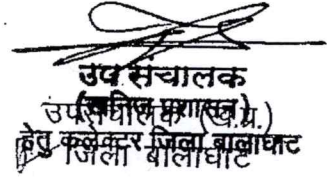 उप संचालक
(खनिज प्रशासन)
उपसंचालक (ख.प्र.)
हेतु कलेक्टर जिला बालाघाट
जिला बालाघाट